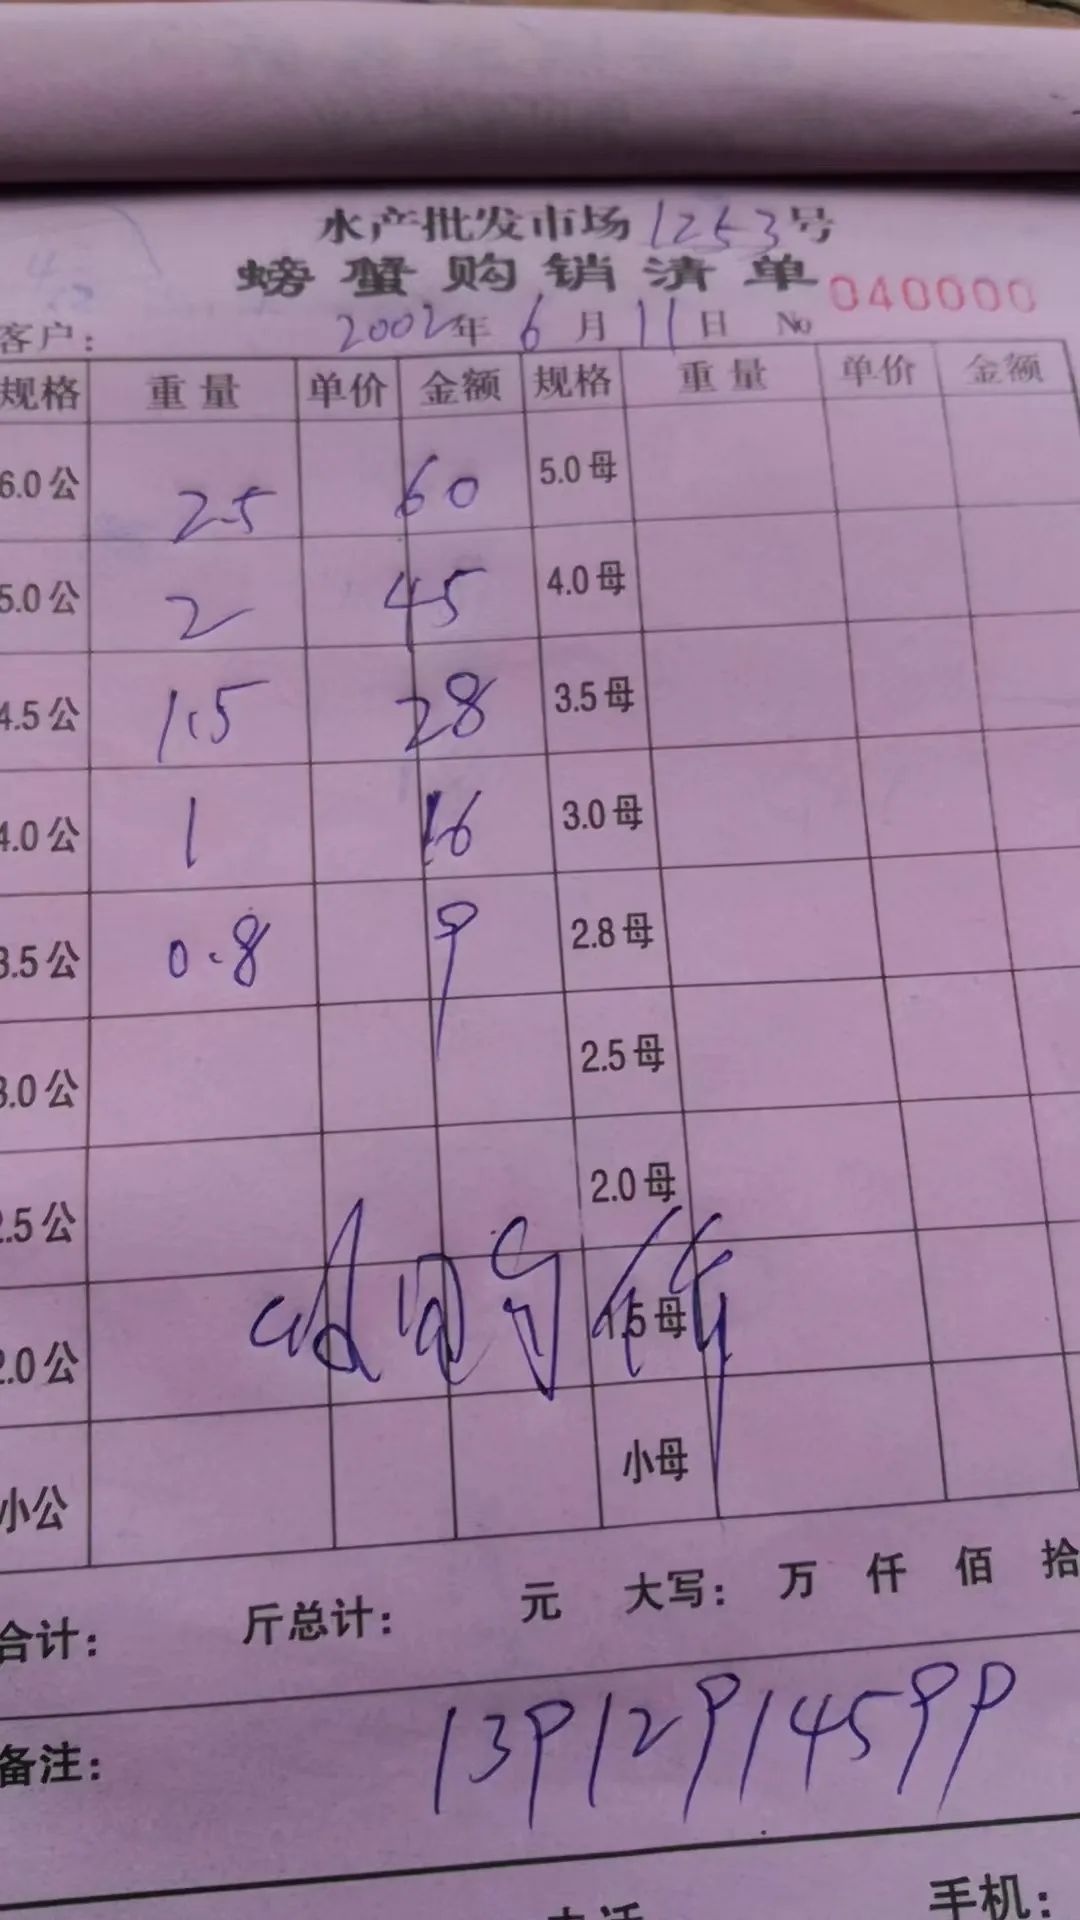 水产批发市场1253号
螃蟹购销清单 040000
客户： 2002年 6月 11日 No
规格 重量 单价 金额 规格 重量 单价 金额
6.0公 25 60 5.0母
5.0公 2 45 4.0母
4.5公 1.5 28 3.5母
4.0公 1 16 3.0母
3.5公 0.8 9 2.8母
3.0公 2.5母
2.5公 2.0母
2.0公 1.5母
小公 小母
合计： 斤总计： 元 大写： 万 仟 佰 拾
备注： 13912914599
电话 手机：